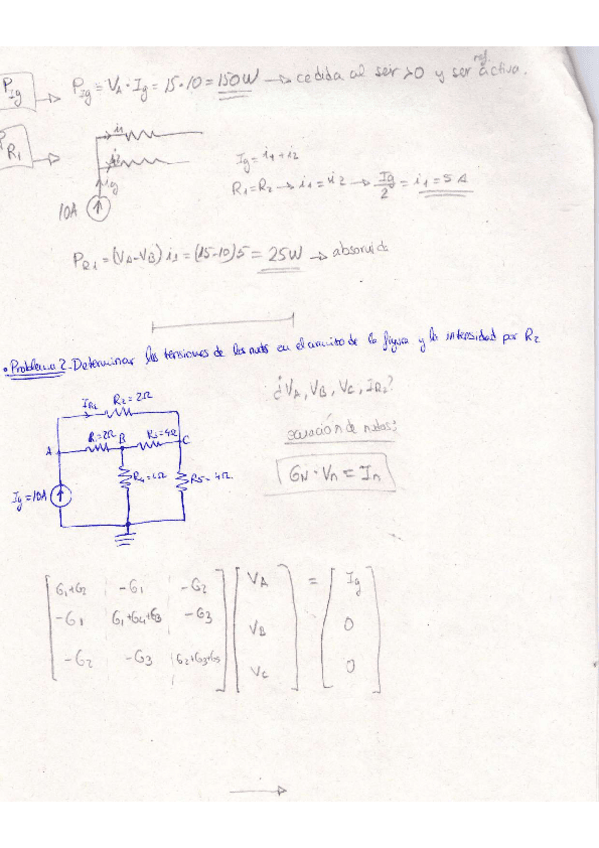 P_Ig → P_Ig = V_A · I_g = 15·10 = 150W → cedida al ser >0 y ser ref. activa.
P_R1 →
i1
i2
ig
10A
I_g = i1 + i2
R1=R2 → i1 = i2 → I_g/2 = i1 = 5 A
P_R1 = (V_A-V_B) i1 = (15-10)5 = 25W → absorvida
• Problema 2.- Determinar las tensiones de los nudos en el circuito de la figura y la intensidad por R2
I_R2 R2=2Ω
¿V_A, V_B, V_C, I_R2?
A R1=2Ω B R3=4Ω C
ecuación de nudos:
R4= R5= 4Ω
G_N · V_n = I_n
Ig=10A
G1+G2 -G1 -G2 V_A = Ig
-G1 G1+G4+G3 -G3 V_B 0
-G2 -G3 G2+G3+G5 V_C 0